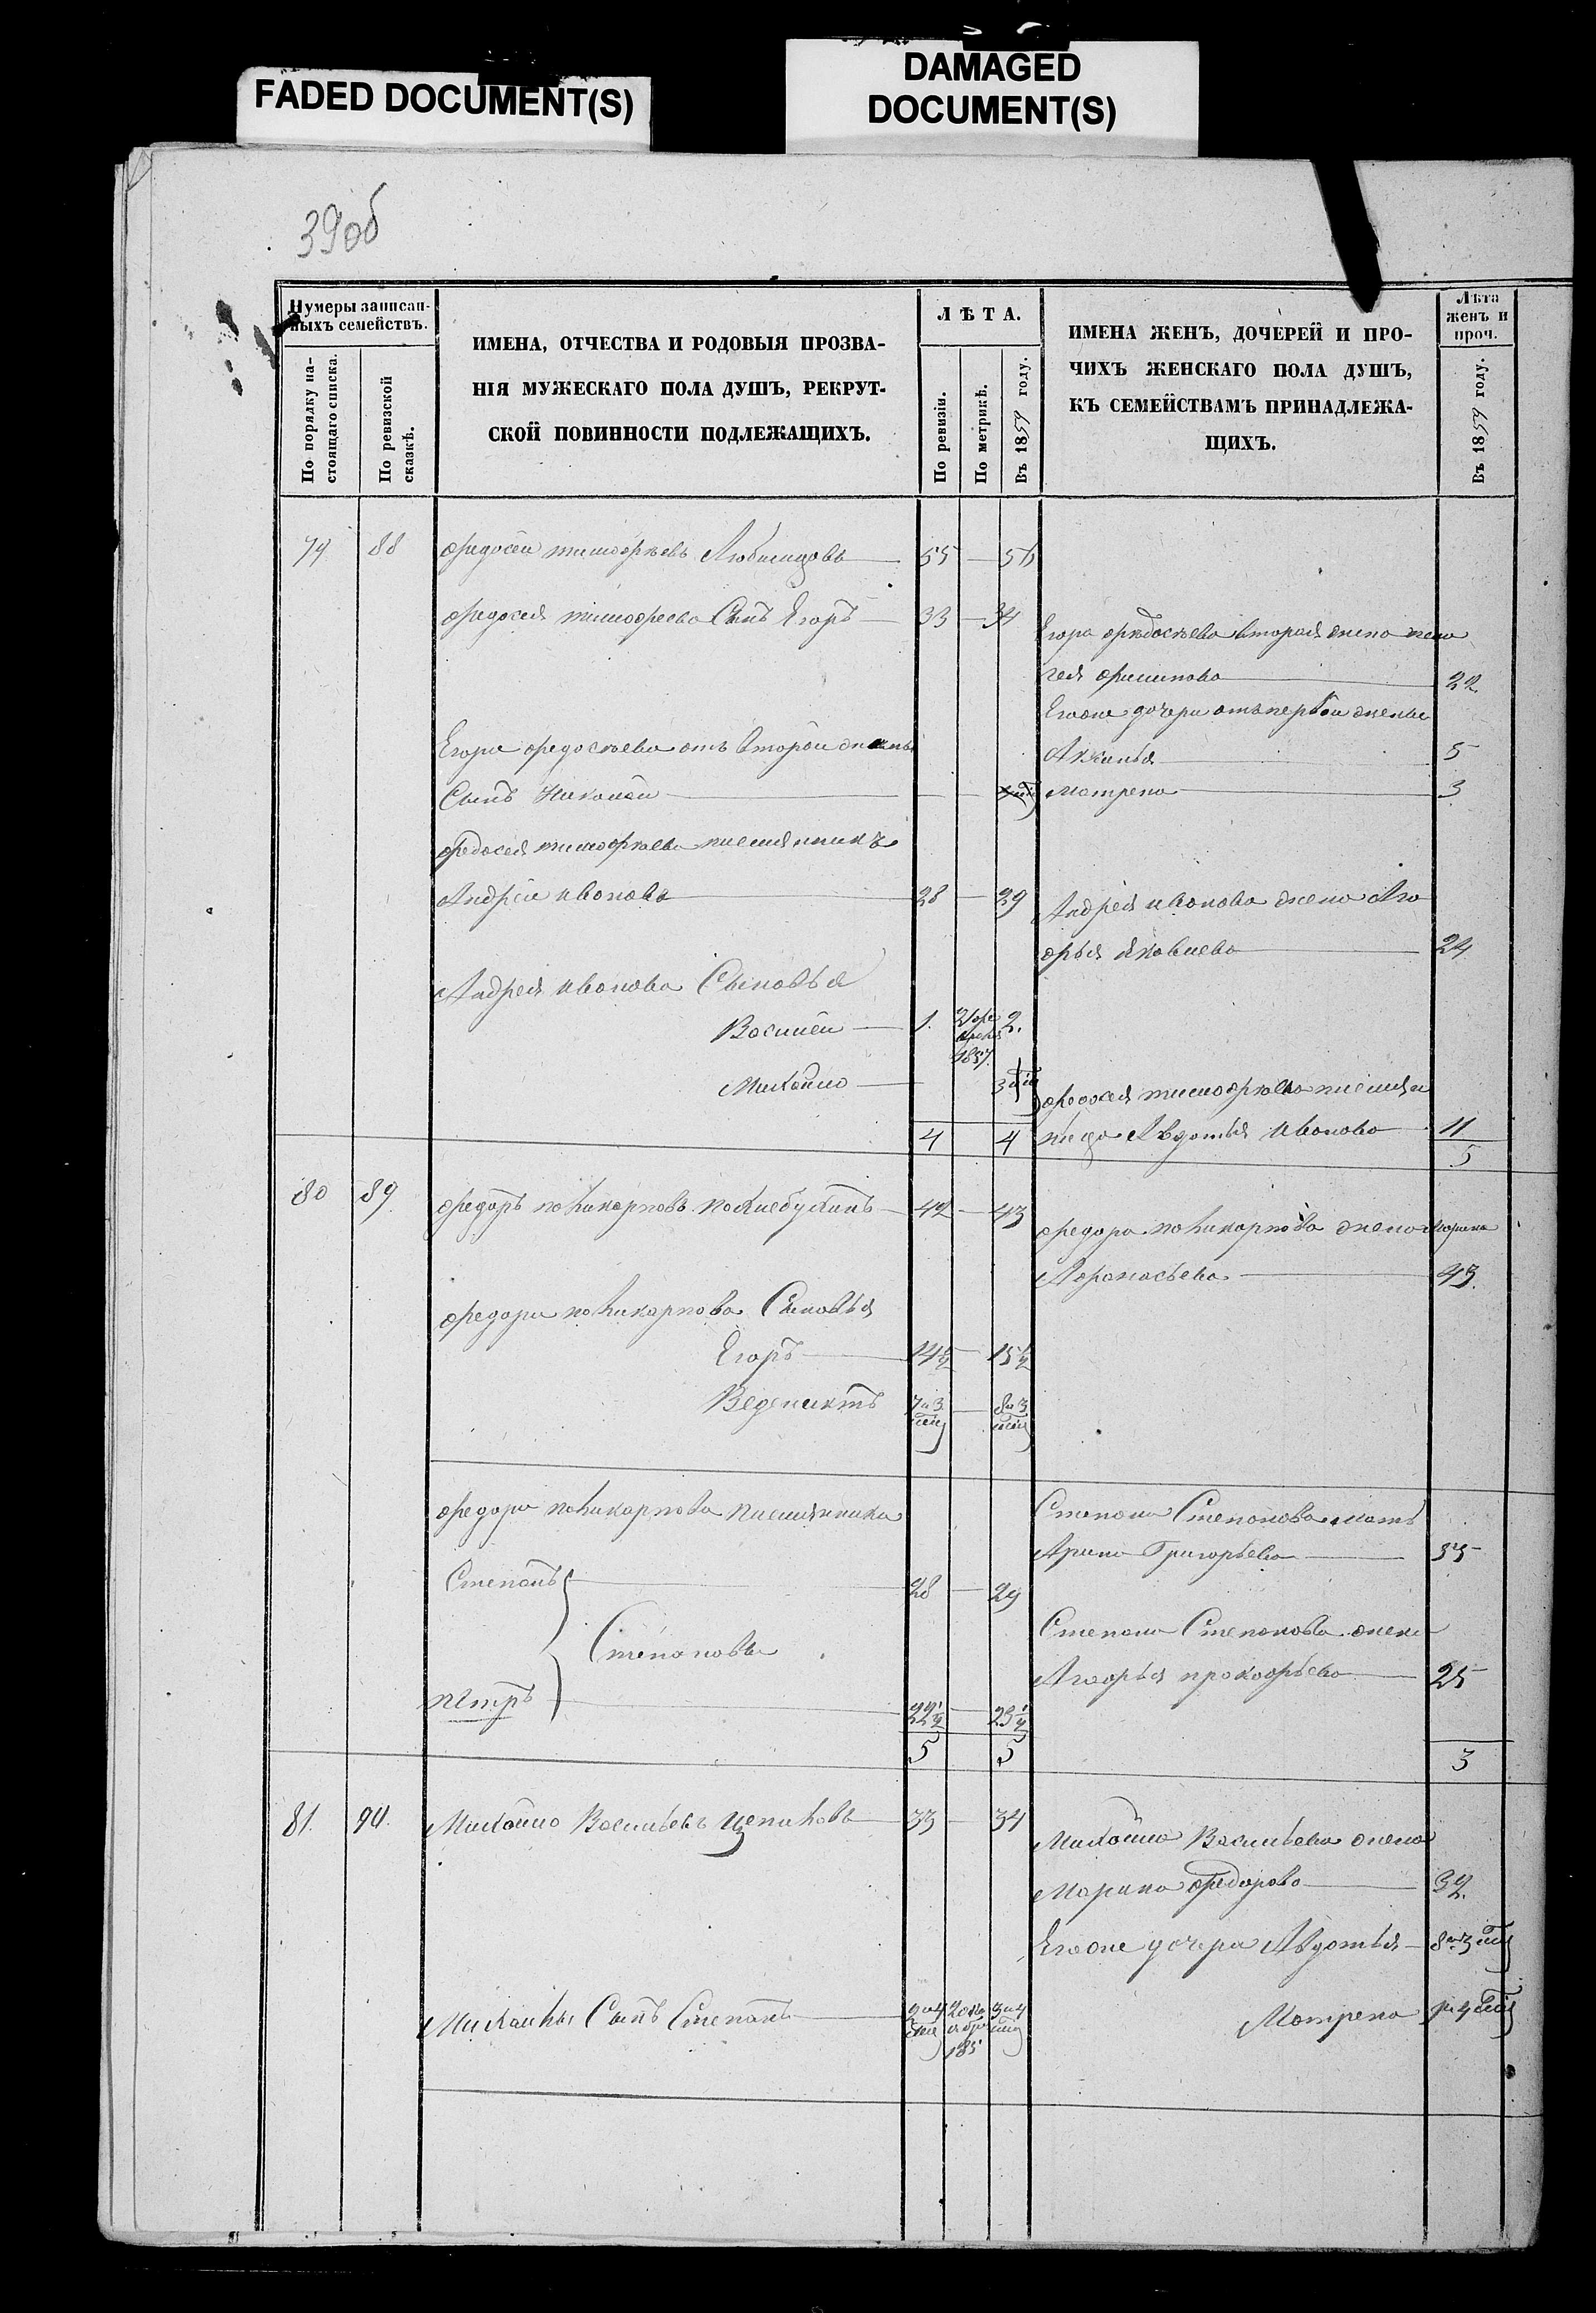 FADED DOCUMENT(S)
DAMAGED
DOCUMENT(S)
39об
Нумеры записан-
ныхъ семействъ.
По порядку на-
стоящаго списка.
По ревизской
сказкѣ.
ИМЕНА, ОТЧЕСТВА И РОДОВЫЯ ПРОЗВА-
НІЯ МУЖЕСКАГО ПОЛА ДУШЪ, РЕКРУТ-
СКОЙ ПОВИННОСТИ ПОДЛЕЖАЩИХЪ.
ЛѢТА.
По ревизіи.
По метрикѣ.
Въ 1859 году.
ИМЕНА ЖЕНЪ, ДОЧЕРЕЙ И ПРО-
ЧИХЪ ЖЕНСКАГО ПОЛА ДУШЪ,
КЪ СЕМЕЙСТВАМЪ ПРИНАДЛЕЖА-
ЩИХЪ.
Лѣта
женъ и
проч.
Въ 1859 году.
79 88 Федосей тимофѣевъ 55 — 56
Федосея тимофеева Сынъ Егоръ — 33 — 34
Егора федосѣева вторая жена
филипова — 22
Егоже дочери отъ первой жены
Егора федосѣева отъ второй жены
Аксинья — 5
Сынъ Николай —
матрена — 3
Федосея тимофѣева племянникъ
Андрей ивановъ — 28 — 29
Андрея иванова жена Лу
ферья яковлева — 24
Андрея иванова Сыновья
Василей — 1. 1857 2.
Михайло —
федосея тимофѣева племян
ница Авдотья иванова 11
4 4 5
80 89 федоръ поликарповъ 42 — 43
федора поликарпова жена марина
Афонасьева — 43
федора поликарпова Сыновья
Егоръ — 14½ — 15½
Ведениктъ 7 и 3 мец — 8 и 3 мец
федора поликарпова племянники
Степана Степанова мать
Арина Григорьева —
Степанъ — 28 — 29
Степановы
Степана Степанова жена
прокофьева — 25
петръ — 22½ — 23½
5 5 3
81. 90. Михайло Васильевъ 33 — 34
Михайла Васильева жена
Марина федорова — 32.
Егоже дочери Авдотья — 8 и 3 мец
Михайлы Сынъ Степанъ — 2 и 4 мец 3 и 4 мец
Матрена